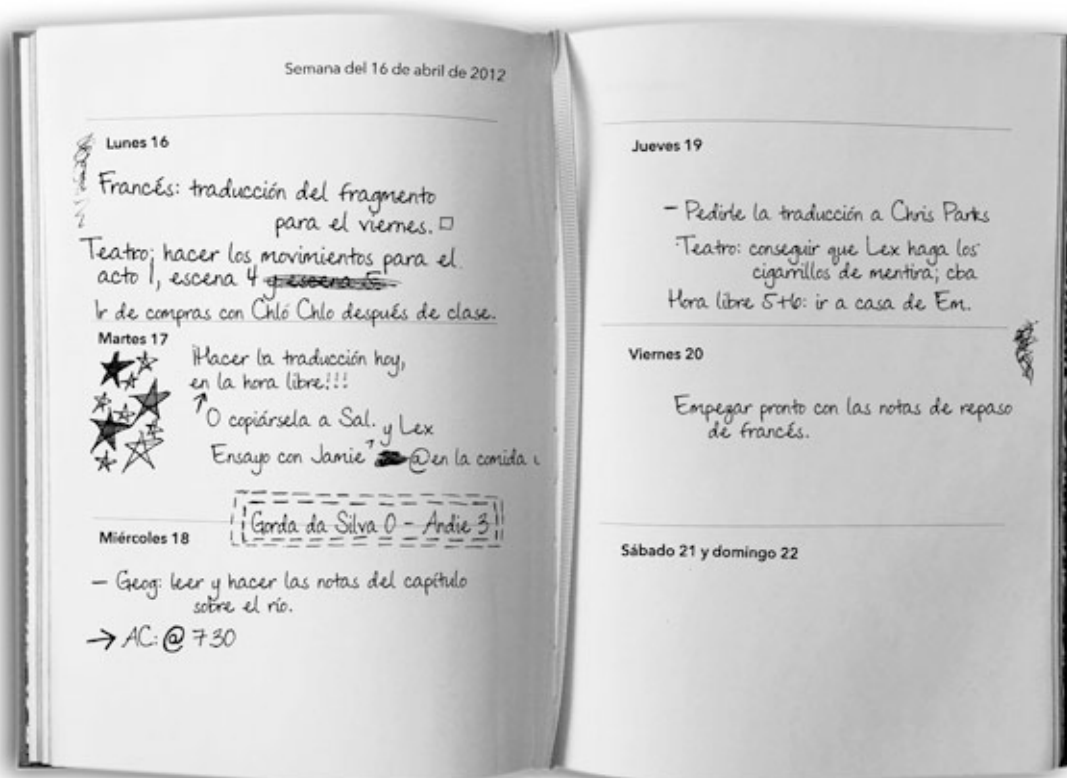 Semana del 16 de abril de 2012
Lunes 16
Francés: traducción del fragmento
para el viernes.
Teatro: hacer los movimientos para el
acto 1, escena 4 y escena 5
Ir de compras con Chló Chlo después de clase.
Martes 17
¡Hacer la traducción hoy,
en la hora libre!!!
O copiársela a Sal.
y Lex
Ensayo con Jamie @ en la comida
Gorda da Silva 0 - Andie 3
Miércoles 18
- Geog: leer y hacer las notas del capítulo
sobre el río.
→ AC: @ 7 30
Jueves 19
- Pedirle la traducción a Chris Parks
Teatro: conseguir que Lex haga los
cigarrillos de mentira; cba
Hora libre 5+6: ir a casa de Em.
Viernes 20
Empezar pronto con las notas de repaso
de francés.
Sábado 21 y domingo 22